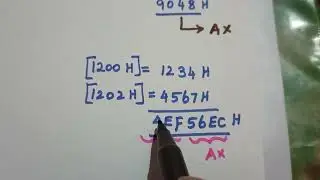 9048 H
AX
[1200 H] = 1234 H
[1202 H] = 4567 H
4EF56EC H
AX